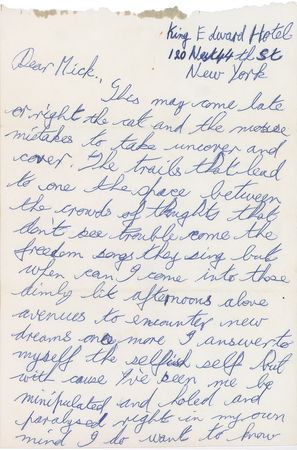 King Edward Hotel
120 West 44th St
New York
Dear Mick.,
This may come late
or right the cat and the mouse
mistakes to take uncover and
cover. The trails that lead
to one the space between
the crowds of thoughts that
don't see trouble come the
freedom songs they sing but
when can I come into those
dimly lit afternoons alove
avenues to encounter new
dreams one more I answer to
myself the selfish self but
with cause I've seen me be
minipulated and doled and
paralysed right in my own
mind I do want to know